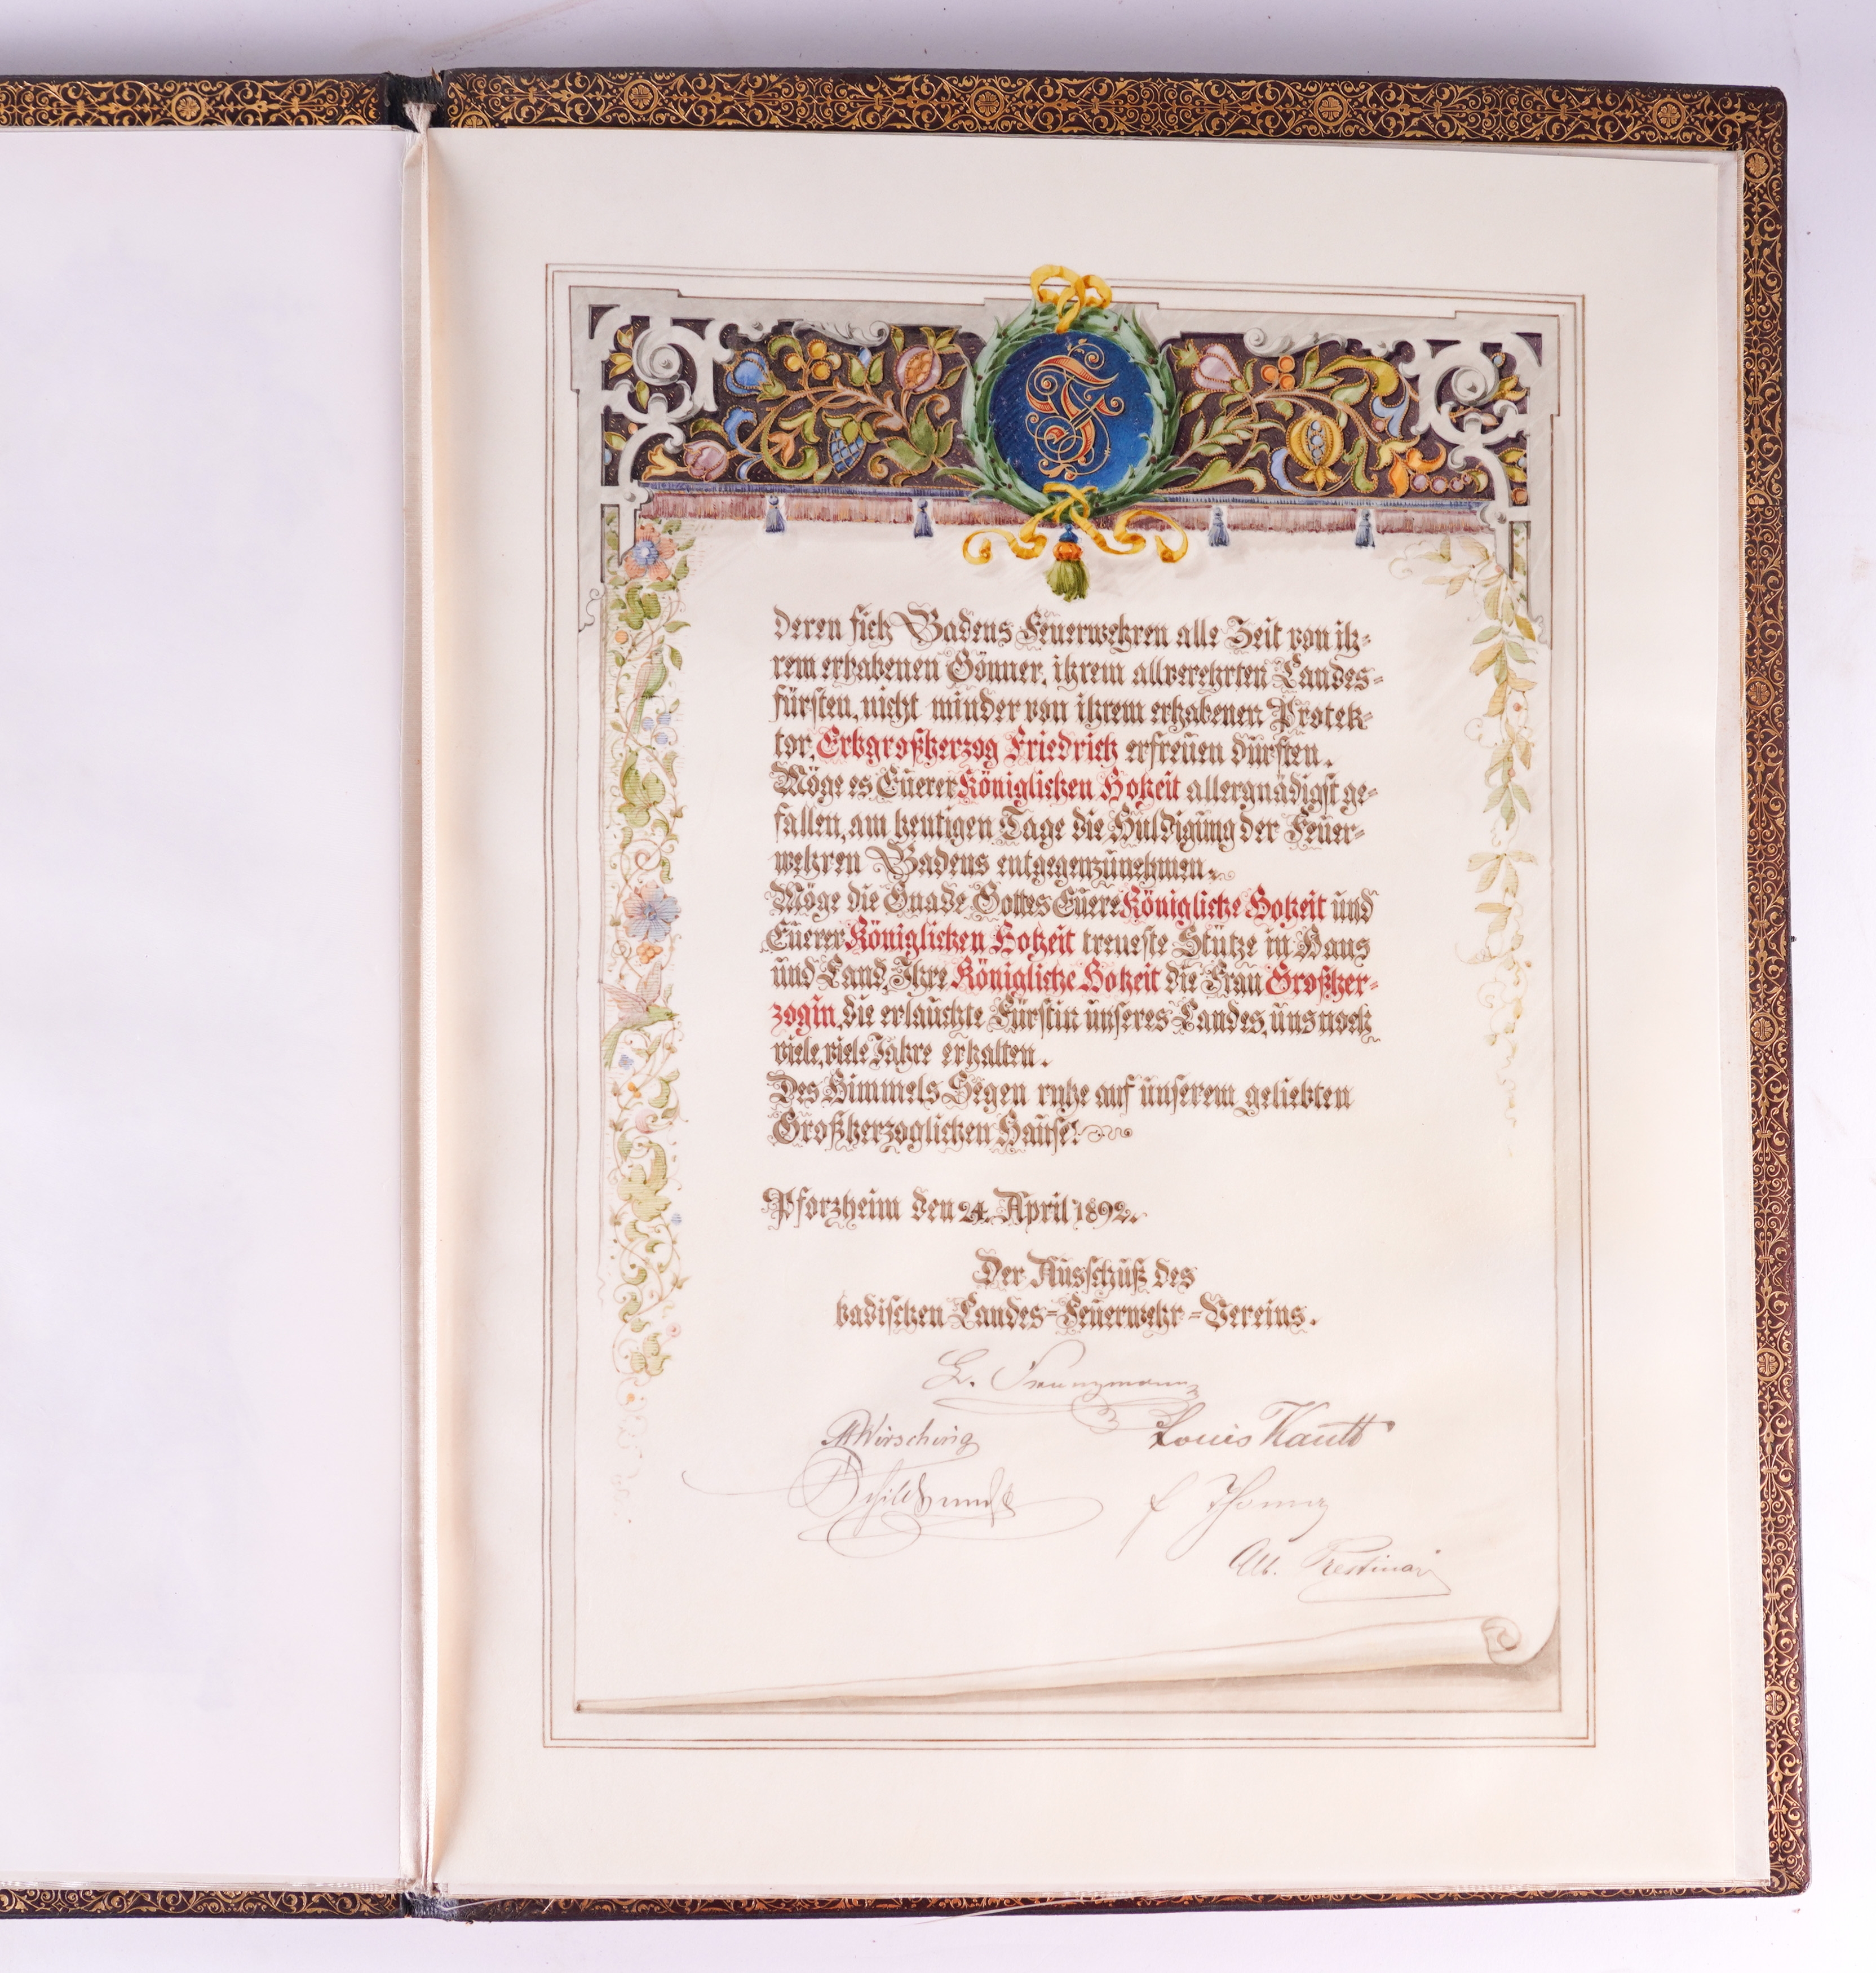 deren sich Badens Feuerwehren alle Zeit von ih-
rem erhabenen Gönner, ihrem allverehrten Landes-
fürsten, nicht minder von ihrem erhabenen Protek-
tor, Erbgroßherzog Friedrich erfreuen dürften.
Möge es Euerer Königlichen Hoheit allergnädigst ge-
fallen, am heutigen Tage die Huldigung der Feuer-
wehren Badens entgegenzunehmen.
Möge die Gnade Gottes Euere Königliche Hoheit und
Euerer Königlichen Hoheit treueste Stütze in Haus
und Land, Ihre Königliche Hoheit die Frau Großher-
zogin, die erlauchte Fürstin unseres Landes, uns noch
viele, viele Jahre erhalten.
Des Himmels Segen ruhe auf unserem geliebten
Großherzoglichen Hause!
Pforzheim den 24. April 1892.
Der Ausschuß des
badischen Landes-Feuerwehr-Vereins.
A Wirsching
Louis Kautt